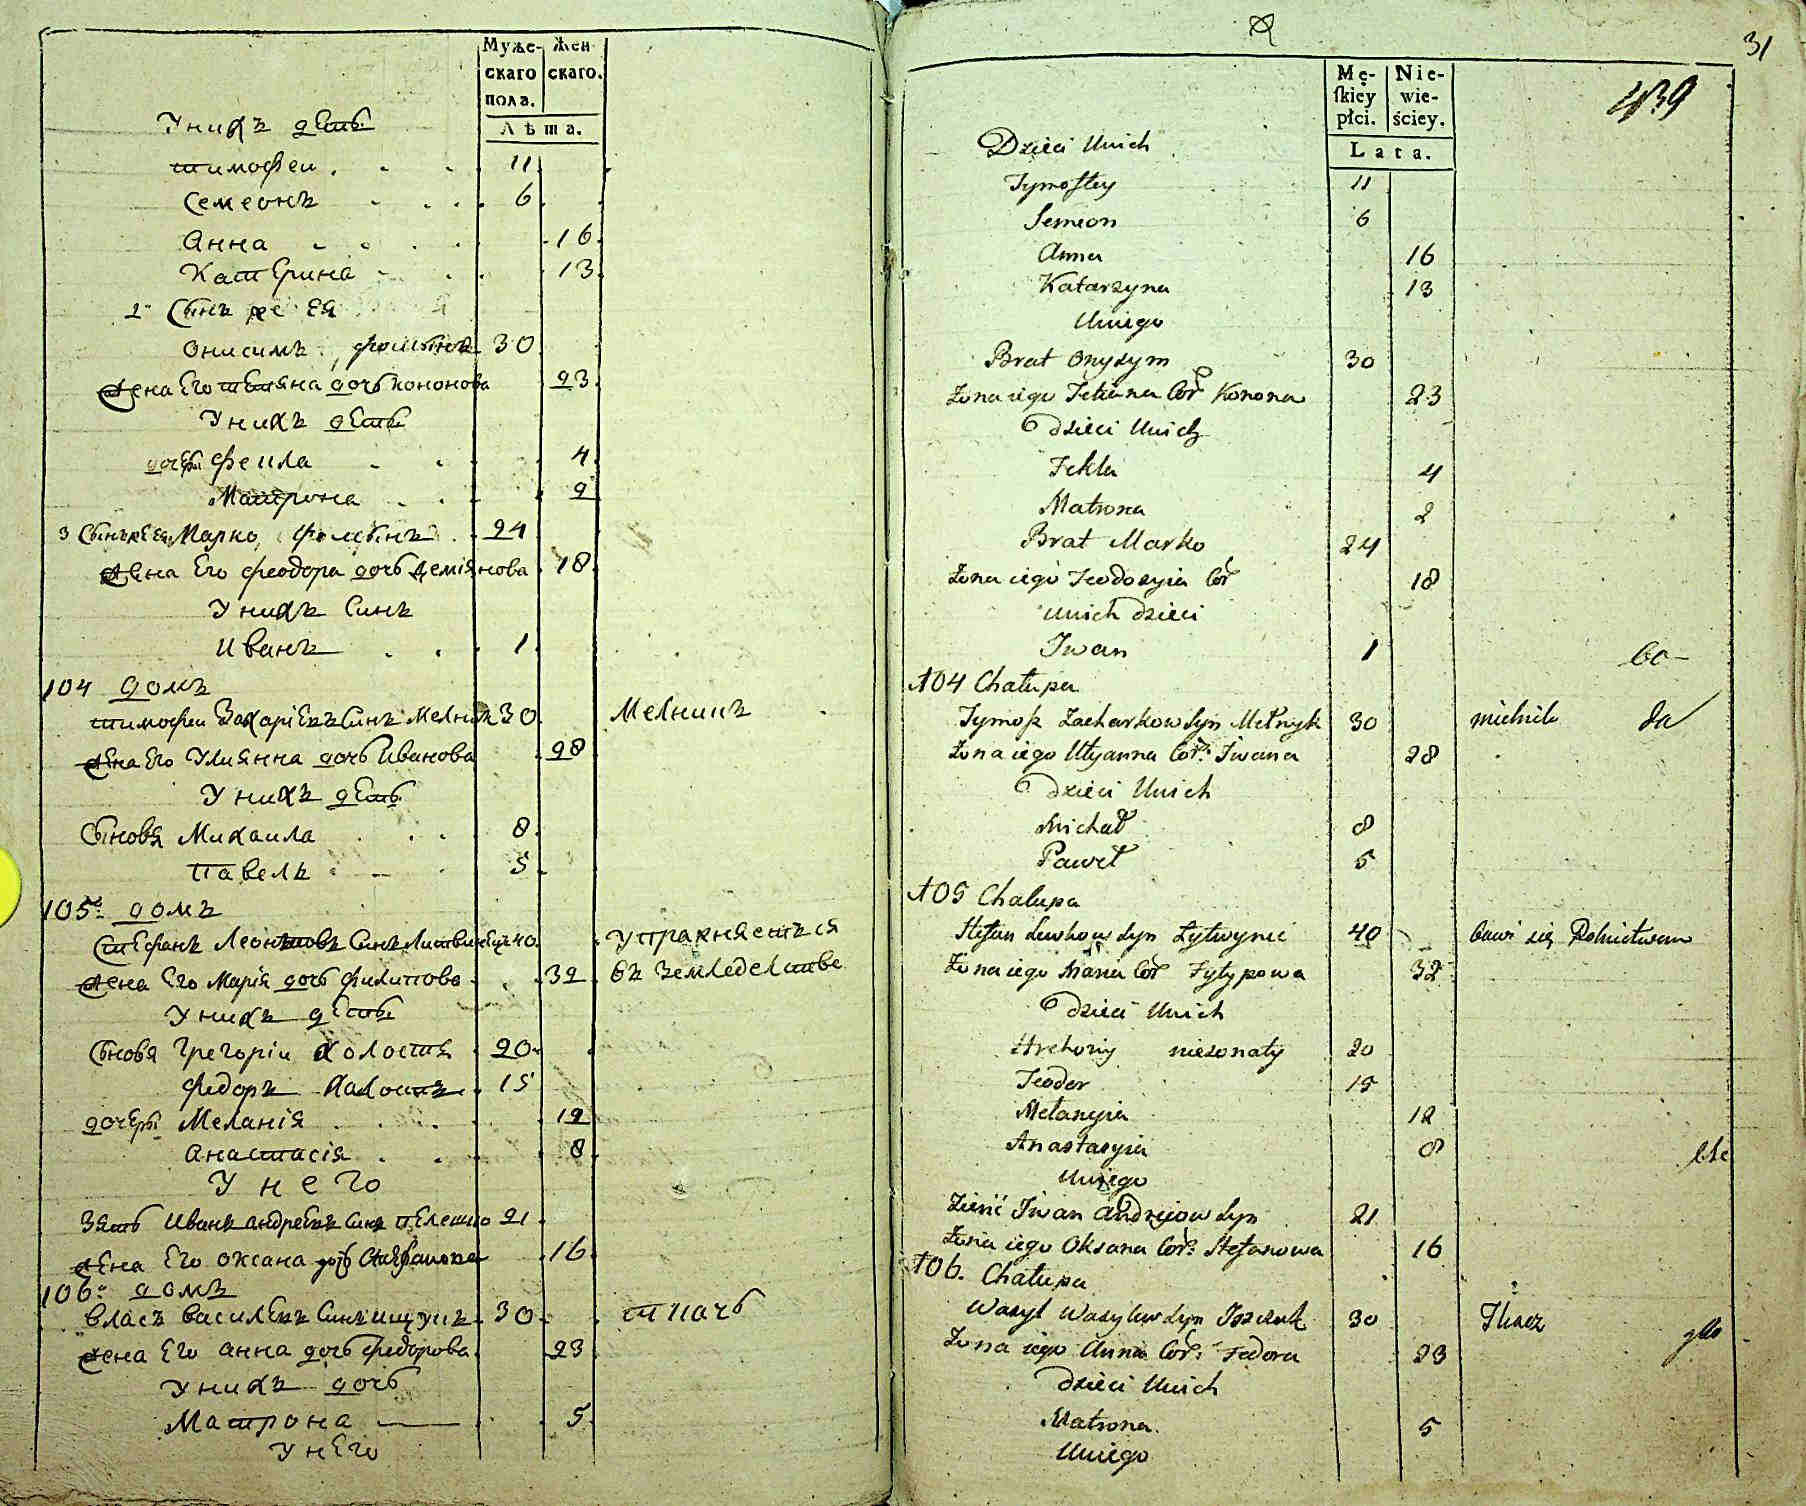 Муже-
скаго
пола.
Жен
скаго.
Лѣта.
Унихъ дети
тимофеи 11
Семеонъ 6
Анна 16
Катерина 13
2 Сынъ же ея
Онисимъ фоминъ 30
Жена Его тетяна дочь Кононова 23
Унихъ дети
дочери Фекла 4
Матрона 2
3 Сынъ же ея Марко фоминъ 24
Жена Его Феодора дочь Деміянова 18
Унихъ Синъ
Иванъ 1
104 домъ
тимофеи Захаріевъ Синъ Мелникъ 30 Мелникъ
Жена Его Улиянна дочь Иванова 28
Унихъ дети
Сыновя Михаила 8
Павелъ 5
105 домъ
Стефанъ Леонтовъ Синъ Литвинецъ 40 упражняется
Жена Его Марія дочь Филипова 32 въ земледелстве
Унихъ дети
Сыновя Григоріи холостъ 20
Федоръ холостъ 15
дочери Меланія 12
Анастасія 8
Унего
Зять Иванъ андреевъ Синъ пелешко 21
Жена Его Оксана дочь Стефанова 16
106 домъ
Власъ василевъ Синъ ищукъ 30 ткачь
Жена Его Анна дочь Федорова 23
Унихъ дочь
Матрона 5
Унего
31
439
Mę-
skiey
płci.
Nie-
wie-
ściey.
Lata.
Dzieci Unich
Tymoftey 11
Semion 6
Anna 16
Katarzyna 13
Uniego
Brat Onysym 30
Żona iego Tetiana Cor Konona 23
Dzieci Unich
Fekla 4
Matrona 2
Brat Marko 24
Żona iego Teodozyia Cor 18
Unich dzieci
Iwan 1
104 Chałupa
Tymosz Zacharkow Syn Melnyk 30 mielnik
Żona iego Ulyanna Cor: Iwana 28
Dzieci Unich
Michał 8
Paweł 5
105 Chalupa
Stefan Lewkow Syn Lytwynec 40 bawi się Rolnictwem
Żona iego Maria Cor Fylypowa 32
Dzieci Unich
Hrehoriy nieżonaty 20
Teodor 15
Melanyia 12
Anastasyia 8
Uniego
Zienć Iwan Andrejow Syn 21
Żona iego Oksana Cor: Stefanowa 16
106. Chałupa
Wasyl Wasylow Syn Iszczuk 30 Tkacz
Żona iego Anna Cor: Fedora 23
Dzieci Unich
Matrona 5
Uniego